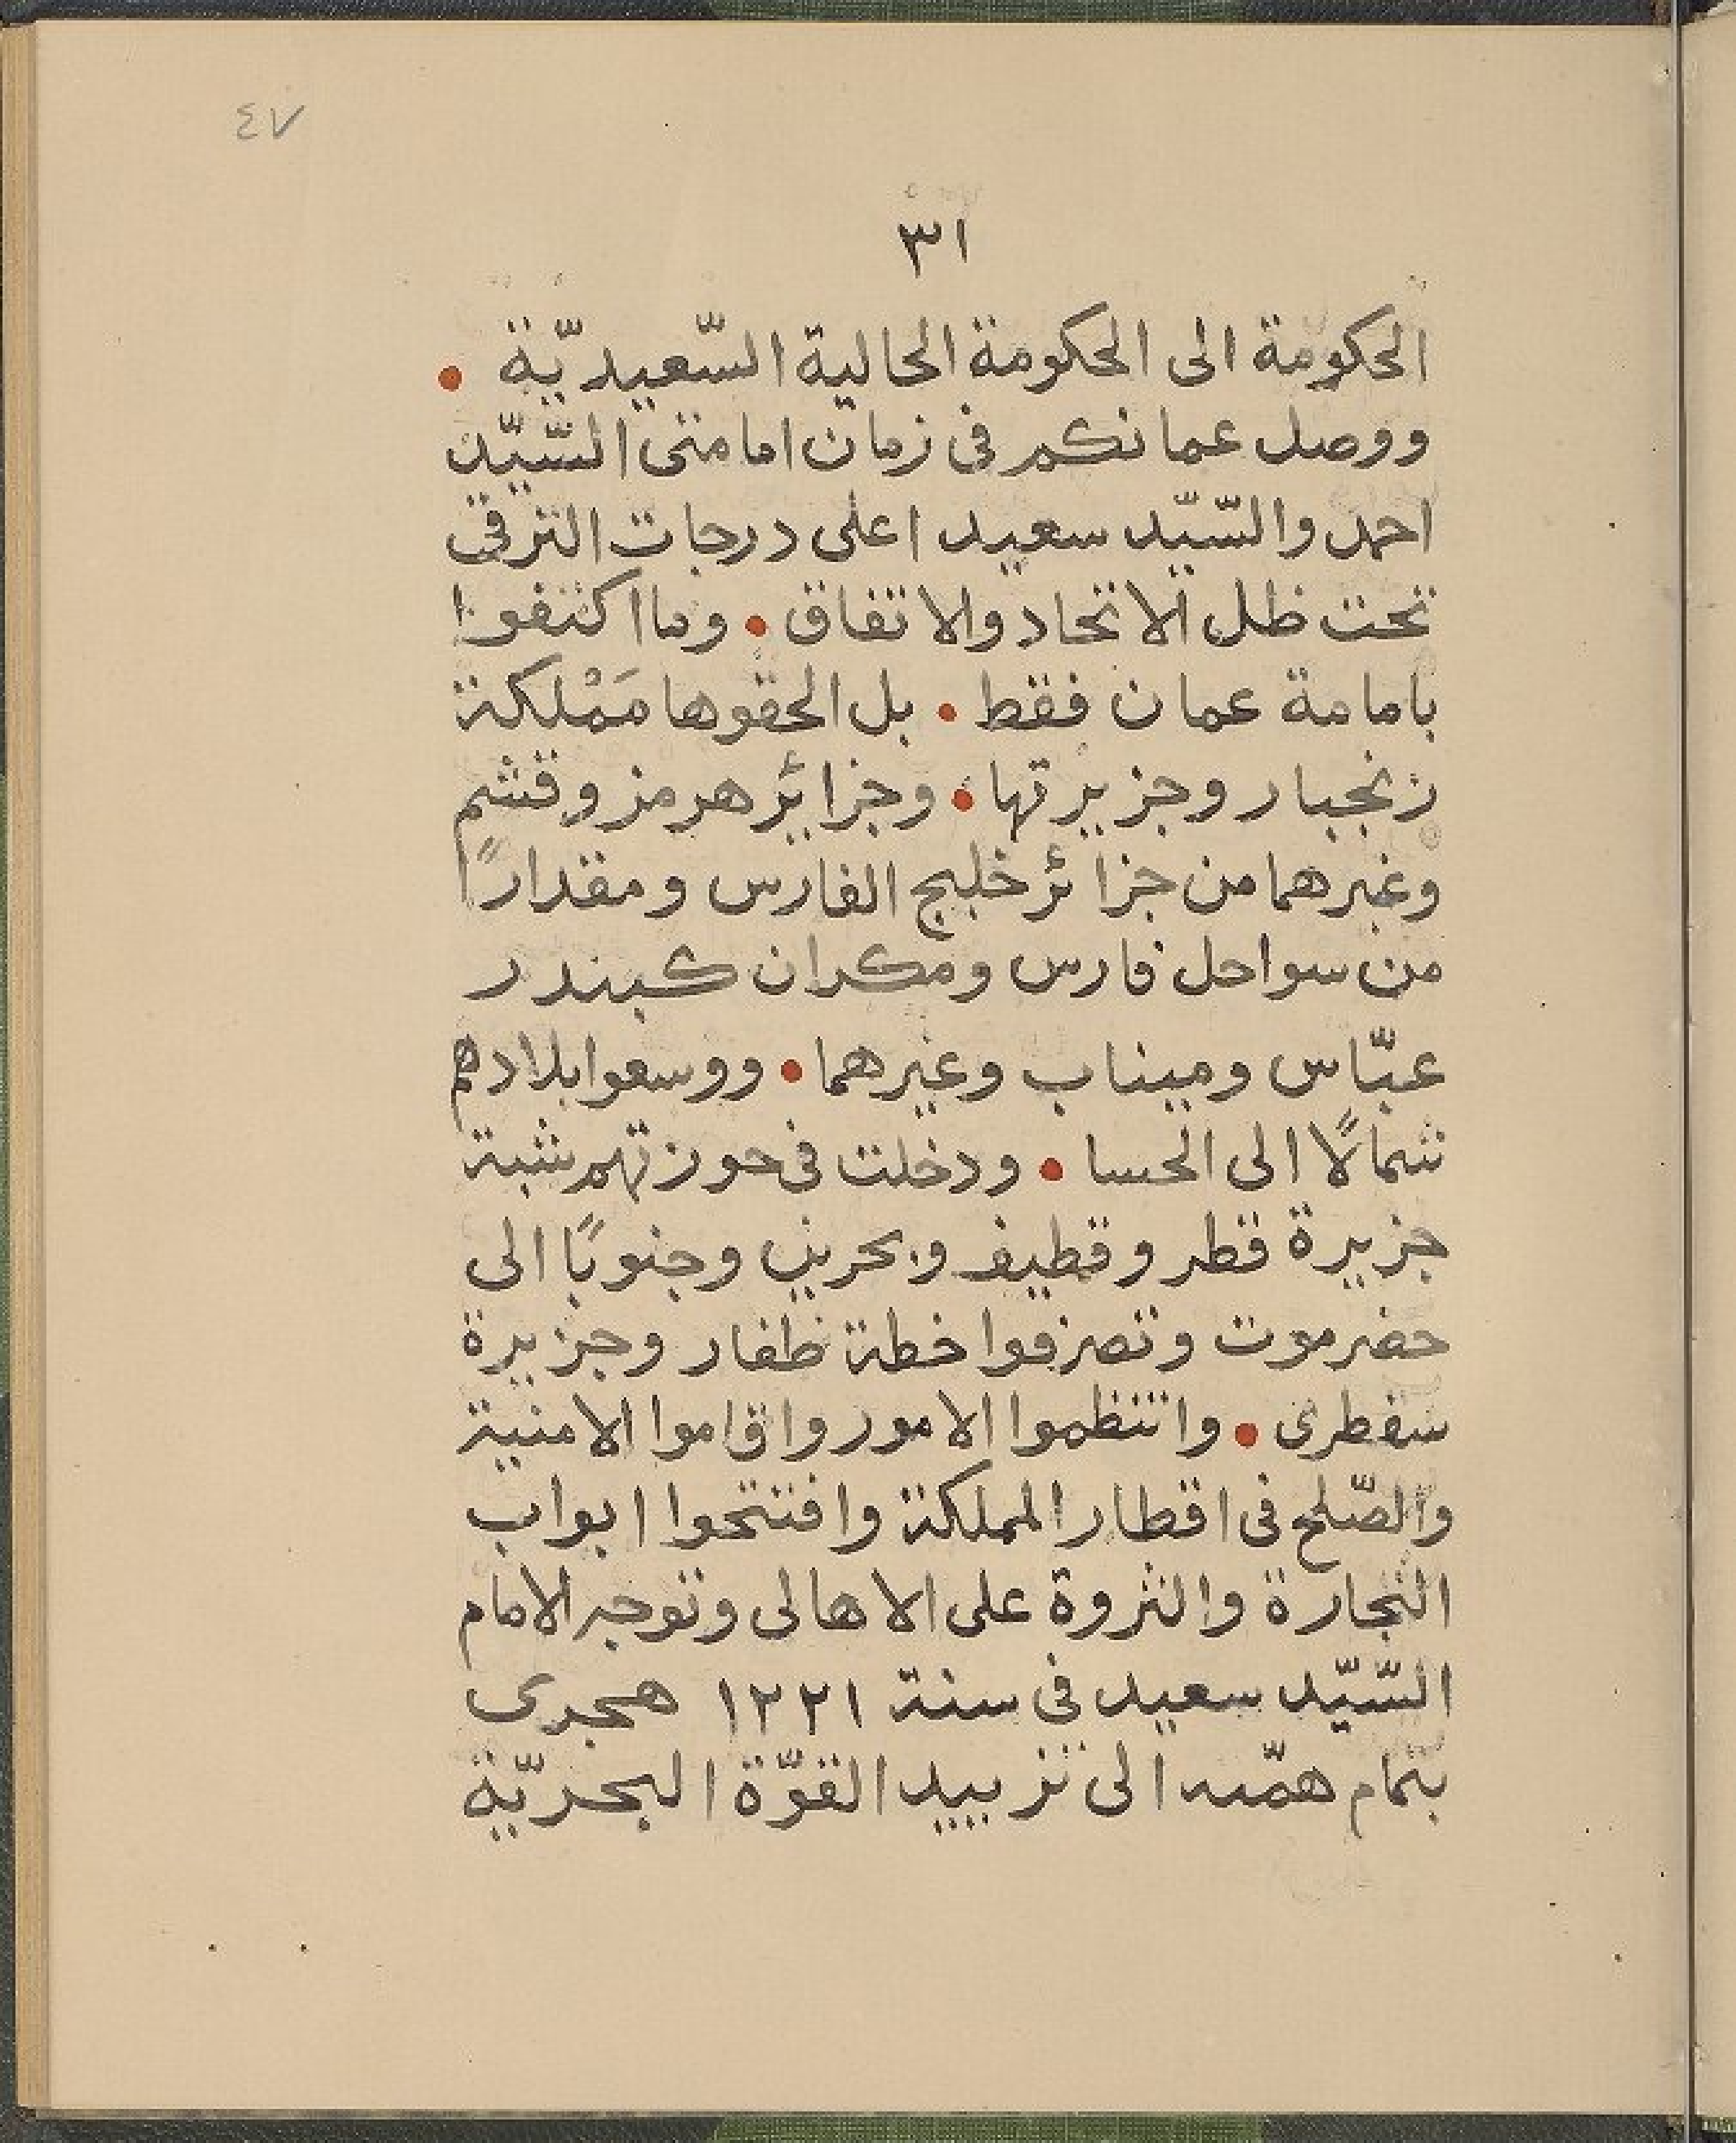 ٤٧
٣١
الحكومة الى الحكومة الحالية السّعيديّة •
ووصل عمانكم فى زمان امامتى السّيّد
احمد والسّيّد سعيد اعلى درجات الترقى
تحت ظل الاتحاد والاتفاق • وما اكتفوا
بامامة عمان فقط • بل الحقوها مَمْلكة
زنجبار وجزيرتها • وجزائر هرمز وقشم
وغيرهما من جزائر خليج الفارس ومقدارًا
من سواحل فارس ومكران كبندر
عبّاس وميناب وغيرهما • ووسعوا بلادهم
شمالًا الى الحسا • ودخلت فى حوزتهم شبة
جزيرة قطر وقطيف وبحرين وجنوبًا الى
حضرموت وتصرفوا خطة ظفار وجزيرة
سقطرى • وانتظموا الامور واقاموا الامنية
والصّلح فى اقطار المملكة وافتتحوا ابواب
التجارة والثروة على الاهالى وتوجه الامام
السّيّد سعيد فى سنة ١٢٢١ هجرى
بتمام همّته الى تزييد القوّة البحريّة